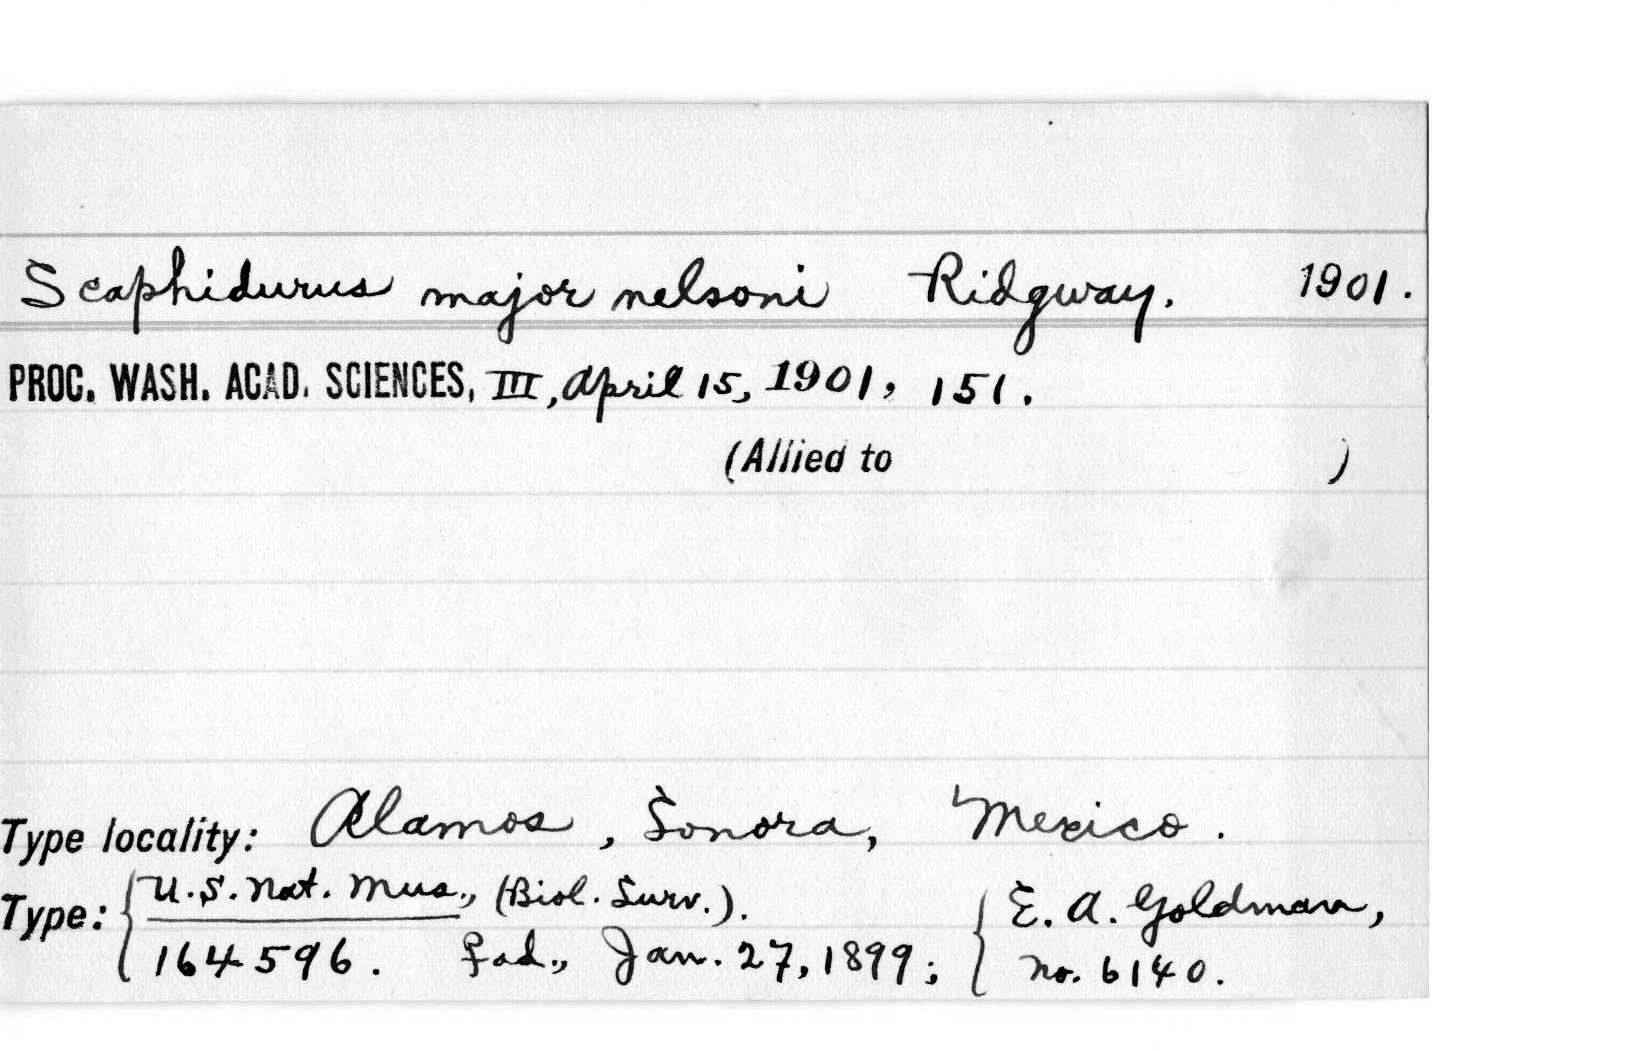 Scaphidurus major nelsoni Ridgway. 1901.
PROC. WASH. ACAD. SCIENCES, III, April 15, 1901, 151.
(Allied to )
Type locality: Alamos, Sonora, Mexico.
Type: { U.S. Nat. Mus., (Biol. Surv.). { E. A. Goldman,
164596. ad., Jan. 27, 1899; No. 6140.